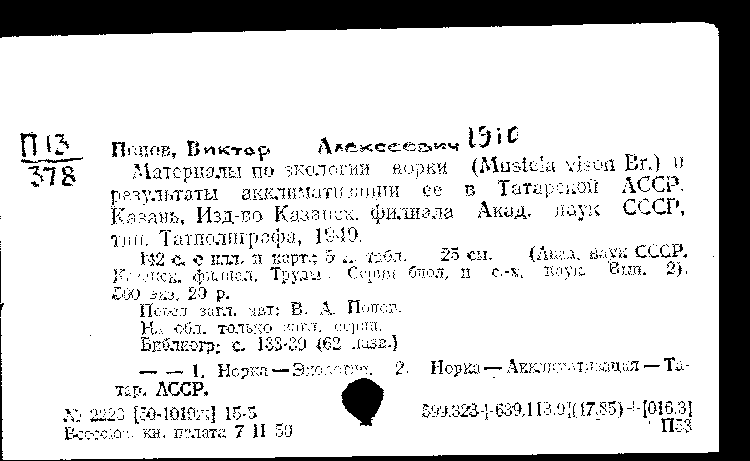 П13
378
Попов, Виктор Алексеевич 1910
Материалы по экологии норки (Mustela vison Br.) и
результаты акклиматизации ее в Татарской АССР.
Казань, Изд-во Казанск. филиала Акад. наук СССР,
тип. Татполиграфа, 1949.
142 с. с илл. и карт.; 5 л. табл. 25 см. (Акад. наук СССР.
Казанск. филиал. Труды. Серия биол. и с.-х. наук. Вып. 2).
500 экз. 20 р.
Перед загл. авт: В. А. Попов.
На обл. только загл. серии.
Библиогр: с. 133-39 (62 назв.)
— — 1. Норка — Экология. 2. Норка — Акклиматизация — Та-
тар. АССР.
№ 2223 [50-1019ж] 15-5
599.323+639.113.9](47.85)+[016.3]
Всесоюз. кн. палата 7 II 50
П53